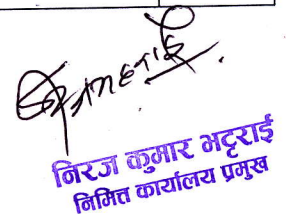 निरज कुमार भट्टराई
निमित्त कार्यालय प्रमुख